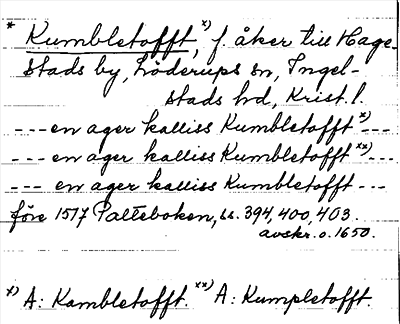 * Kumbletofft, x) f. åker till Hage-
stads by, Löderups sn, Ingel-
stads hd, Krist. l.
--- en ager kalliss Kumbletofft x) ---
--- en ager kalliss Kumbletofft xx) ---
--- en ager kalliss Kumbletofft ---
före 1517 Palteboken, ss. 394, 400, 403.
avskr. o. 1650.
x) A: Kambletofft. xx) A: Kumpletofft.